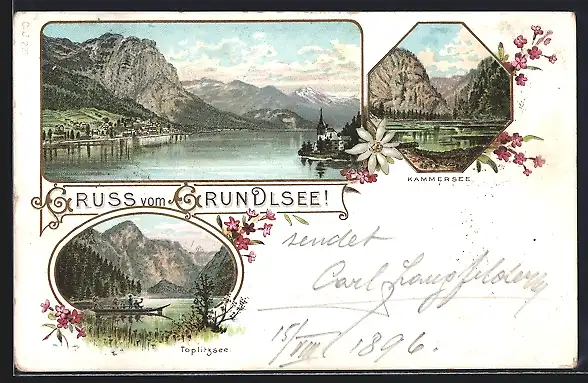 GRUSS vom GRUNDLSEE!
KAMMERSEE.
Toplitzsee.
sendet
Carl
15/VIII 1896.